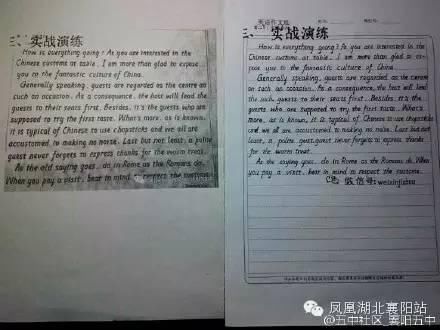 三、实战演练
How is everything going? As you are interested in the
Chinese customs at table, I am more than glad to expose
you to the fantastic culture of China.
Generally speaking, guests are regarded as the centre on
such an occasion. As a consequence, the host will lead the
guests to their seats first. Besides, it's the guests who are
supposed to try the first taste. What's more, as is known,
it is typical of Chinese to use chopsticks and we all are
accustomed to making no noise. Last but not least, a polite
guest never forgets to express thanks for the warm treat.
As the old saying goes, do in Rome as the Romans do.
When you pay a visit, bear in mind to respect the customs.
英语作文纸
三、实战演练
How is everything going? As you are interested in the
Chinese customs at table, I am more than glad to ex-
pose you to the fantastic culture of China.
Generally speaking, guests are regarded as the centre
on such an occasion. As a consequence, the host will lead
the guests to their seats first. Besides, it's the
guests who are supposed to try the first taste. What's
more, as is known, it is typical of Chinese to use chopsticks
and we all are accustomed to making no noise. Last but not
least, a polite guest never forgets to express thanks
for the warm treat.
As the saying goes, do in Rome as the Romans do. When
you pay a visit, bear in mind to respect the customs.
微信号: weixinjiezou
凤凰湖北襄阳站
@五中社区_襄阳五中